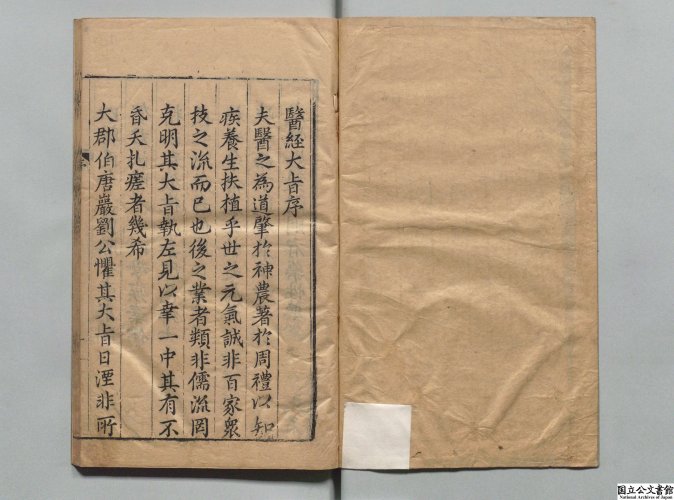 醫經大旨序
夫醫之為道肇於神農著於周禮以知
疾養生扶植乎世之元氣誠非百家眾
技之流而已也後之業者類非儒流罔
克明其大旨執左見以幸一中其有不
昏夭札瘥者幾希
大郡伯唐巖劉公懼其大旨日湮非所
国立公文書館
National Archives of Japan